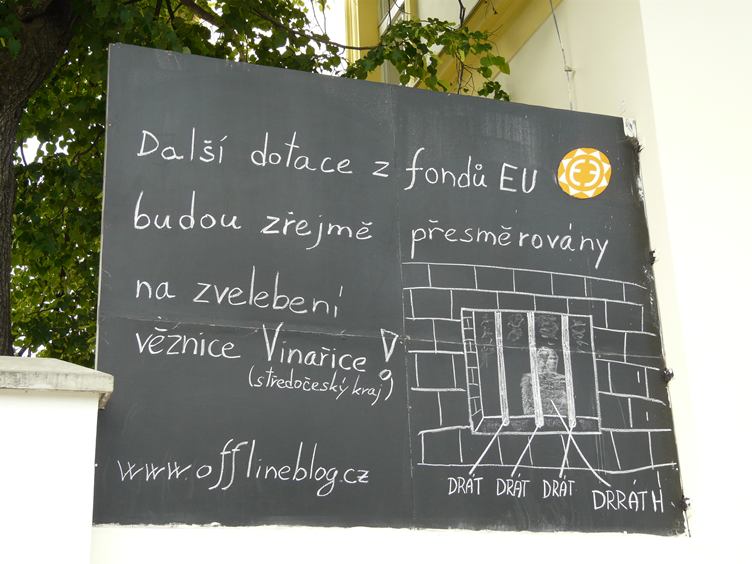 Další dotace z fondů EU
budou zřejmě přesměrovány
na zvelebení
věznice Vinařice!
(středočeský kraj)
www.offlineblog.cz
DRÁT DRÁT DRÁT DRRÁTH